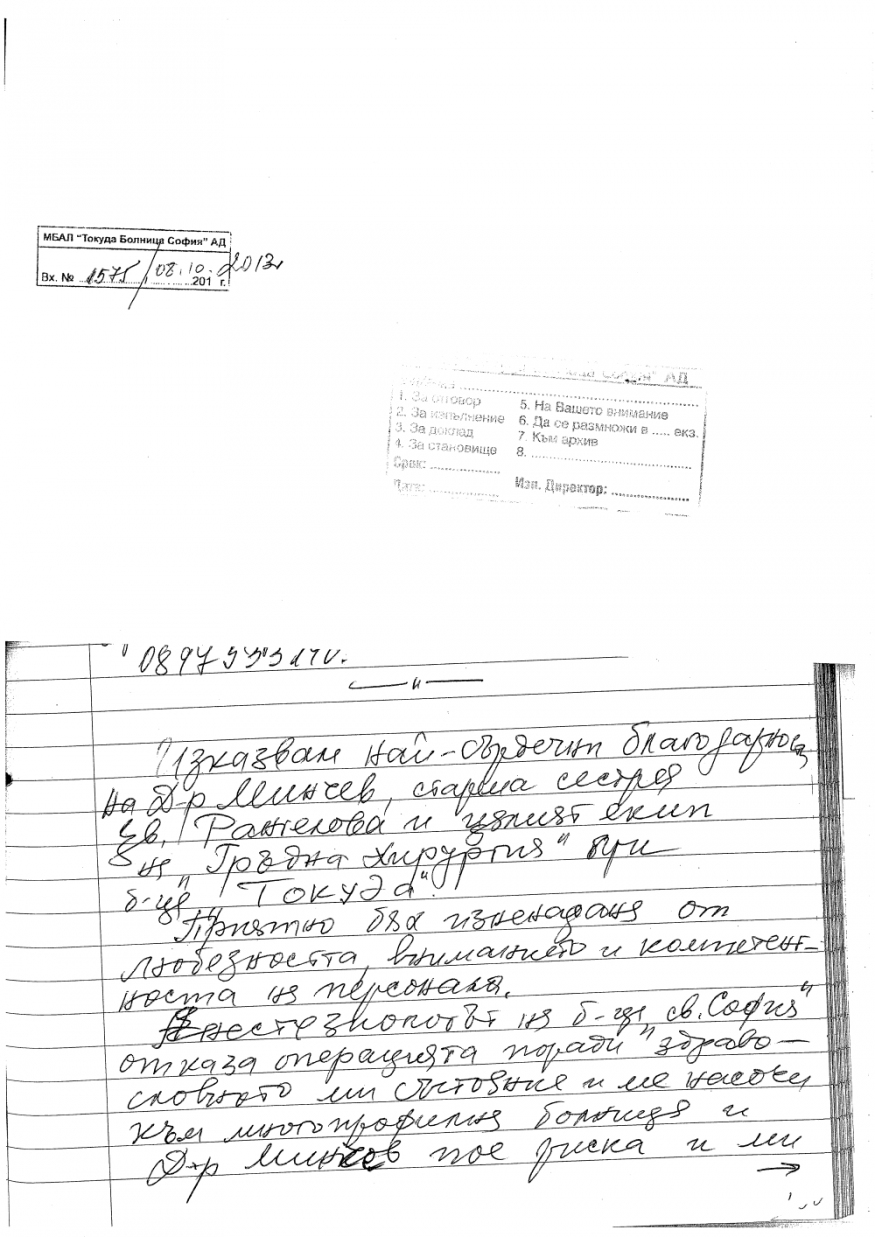 МБАЛ "Токуда Болница София" АД
Вх. № 1575 / 08.10.2013г.
201 г.
София" АД
1. За отговор
2. За изпълнение
3. За доклад
4. За становище
Срок: ..............
Дата: ..............
5. На Вашето внимание
6. Да се размножи в ..... екз.
7. Към архив
8. ..............
Изп. Директор: ..............
Изказвам най-сърдечни благодарнос
на Д-р Минчев, старша сестра
Цв. Рангелова и целият екип
на "Гръдна хирургия" при
б-ца "Токуда".
Приятно бях изненадана от
любезността, вниманието и компетент-
носта на персонала.
на б-ца "св. София"
отказа операцията поради здраво-
словното ми състояние и ме насочи
към многопрофилна болница и
Д-р Минчев пое риска и ми